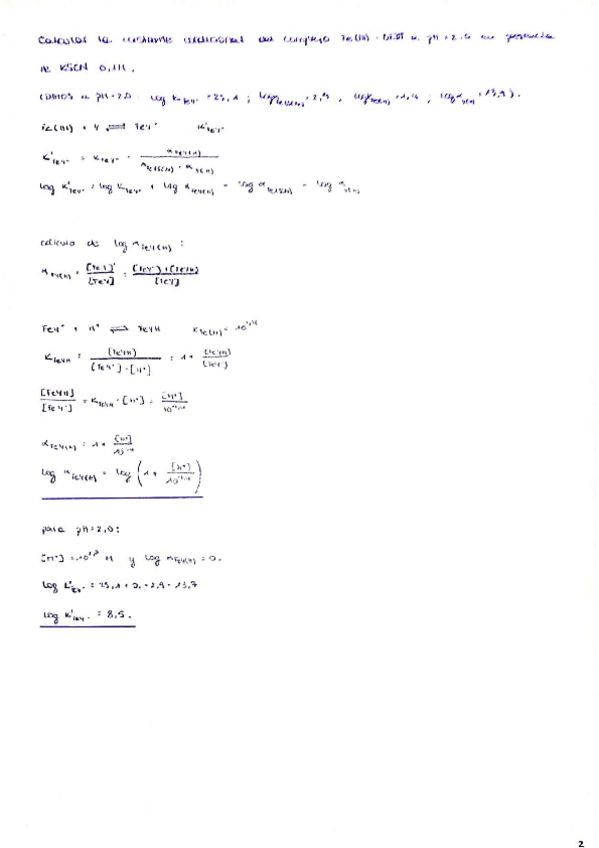 Calcular la constante condicional del complejo Fe(III)-EDTA a pH=2,0 en presencia
de KSCN 0,1M.
(DATOS a pH=2,0: log K FeY⁻ = 25,1 ; log α Fe(SCN) = 2,9 , log K = 1,4 ; log α Y(H) = 13,7).
Fe(III) + Y ⇌ FeY⁻ K'FeY⁻
K'FeY⁻ = KFeY⁻ · αFeY(H) / αFe(SCN) · αY(H)
log K'FeY⁻ = log KFeY⁻ + log αFeY(H) - log αFe(SCN) - log αY(H)
cálculo de log αFeY(H) :
αFeY(H) = [FeY]' / [FeY⁻] = [FeY⁻] + [FeYH] / [FeY⁻]
FeY⁻ + H⁺ ⇌ FeYH = 10^1,4
KFeYH = [FeYH] / [FeY⁻]·[H⁺] = 1 + [FeYH] / [FeY⁻]
[FeYH] / [FeY⁻] = KFeYH · [H⁺] = [H⁺] / 10^-1,4
αFeY(H) = 1 + [H⁺] / 10^-1,4
log αFeY(H) = log (1 + [H⁺] / 10^-1,4)
para pH=2,0:
[H⁺] = M y log αFeY(H) = 0.
log K'FeY⁻ = 25,1 + 0 - 2,9 - 13,7
log K'FeY⁻ = 8,5.
2